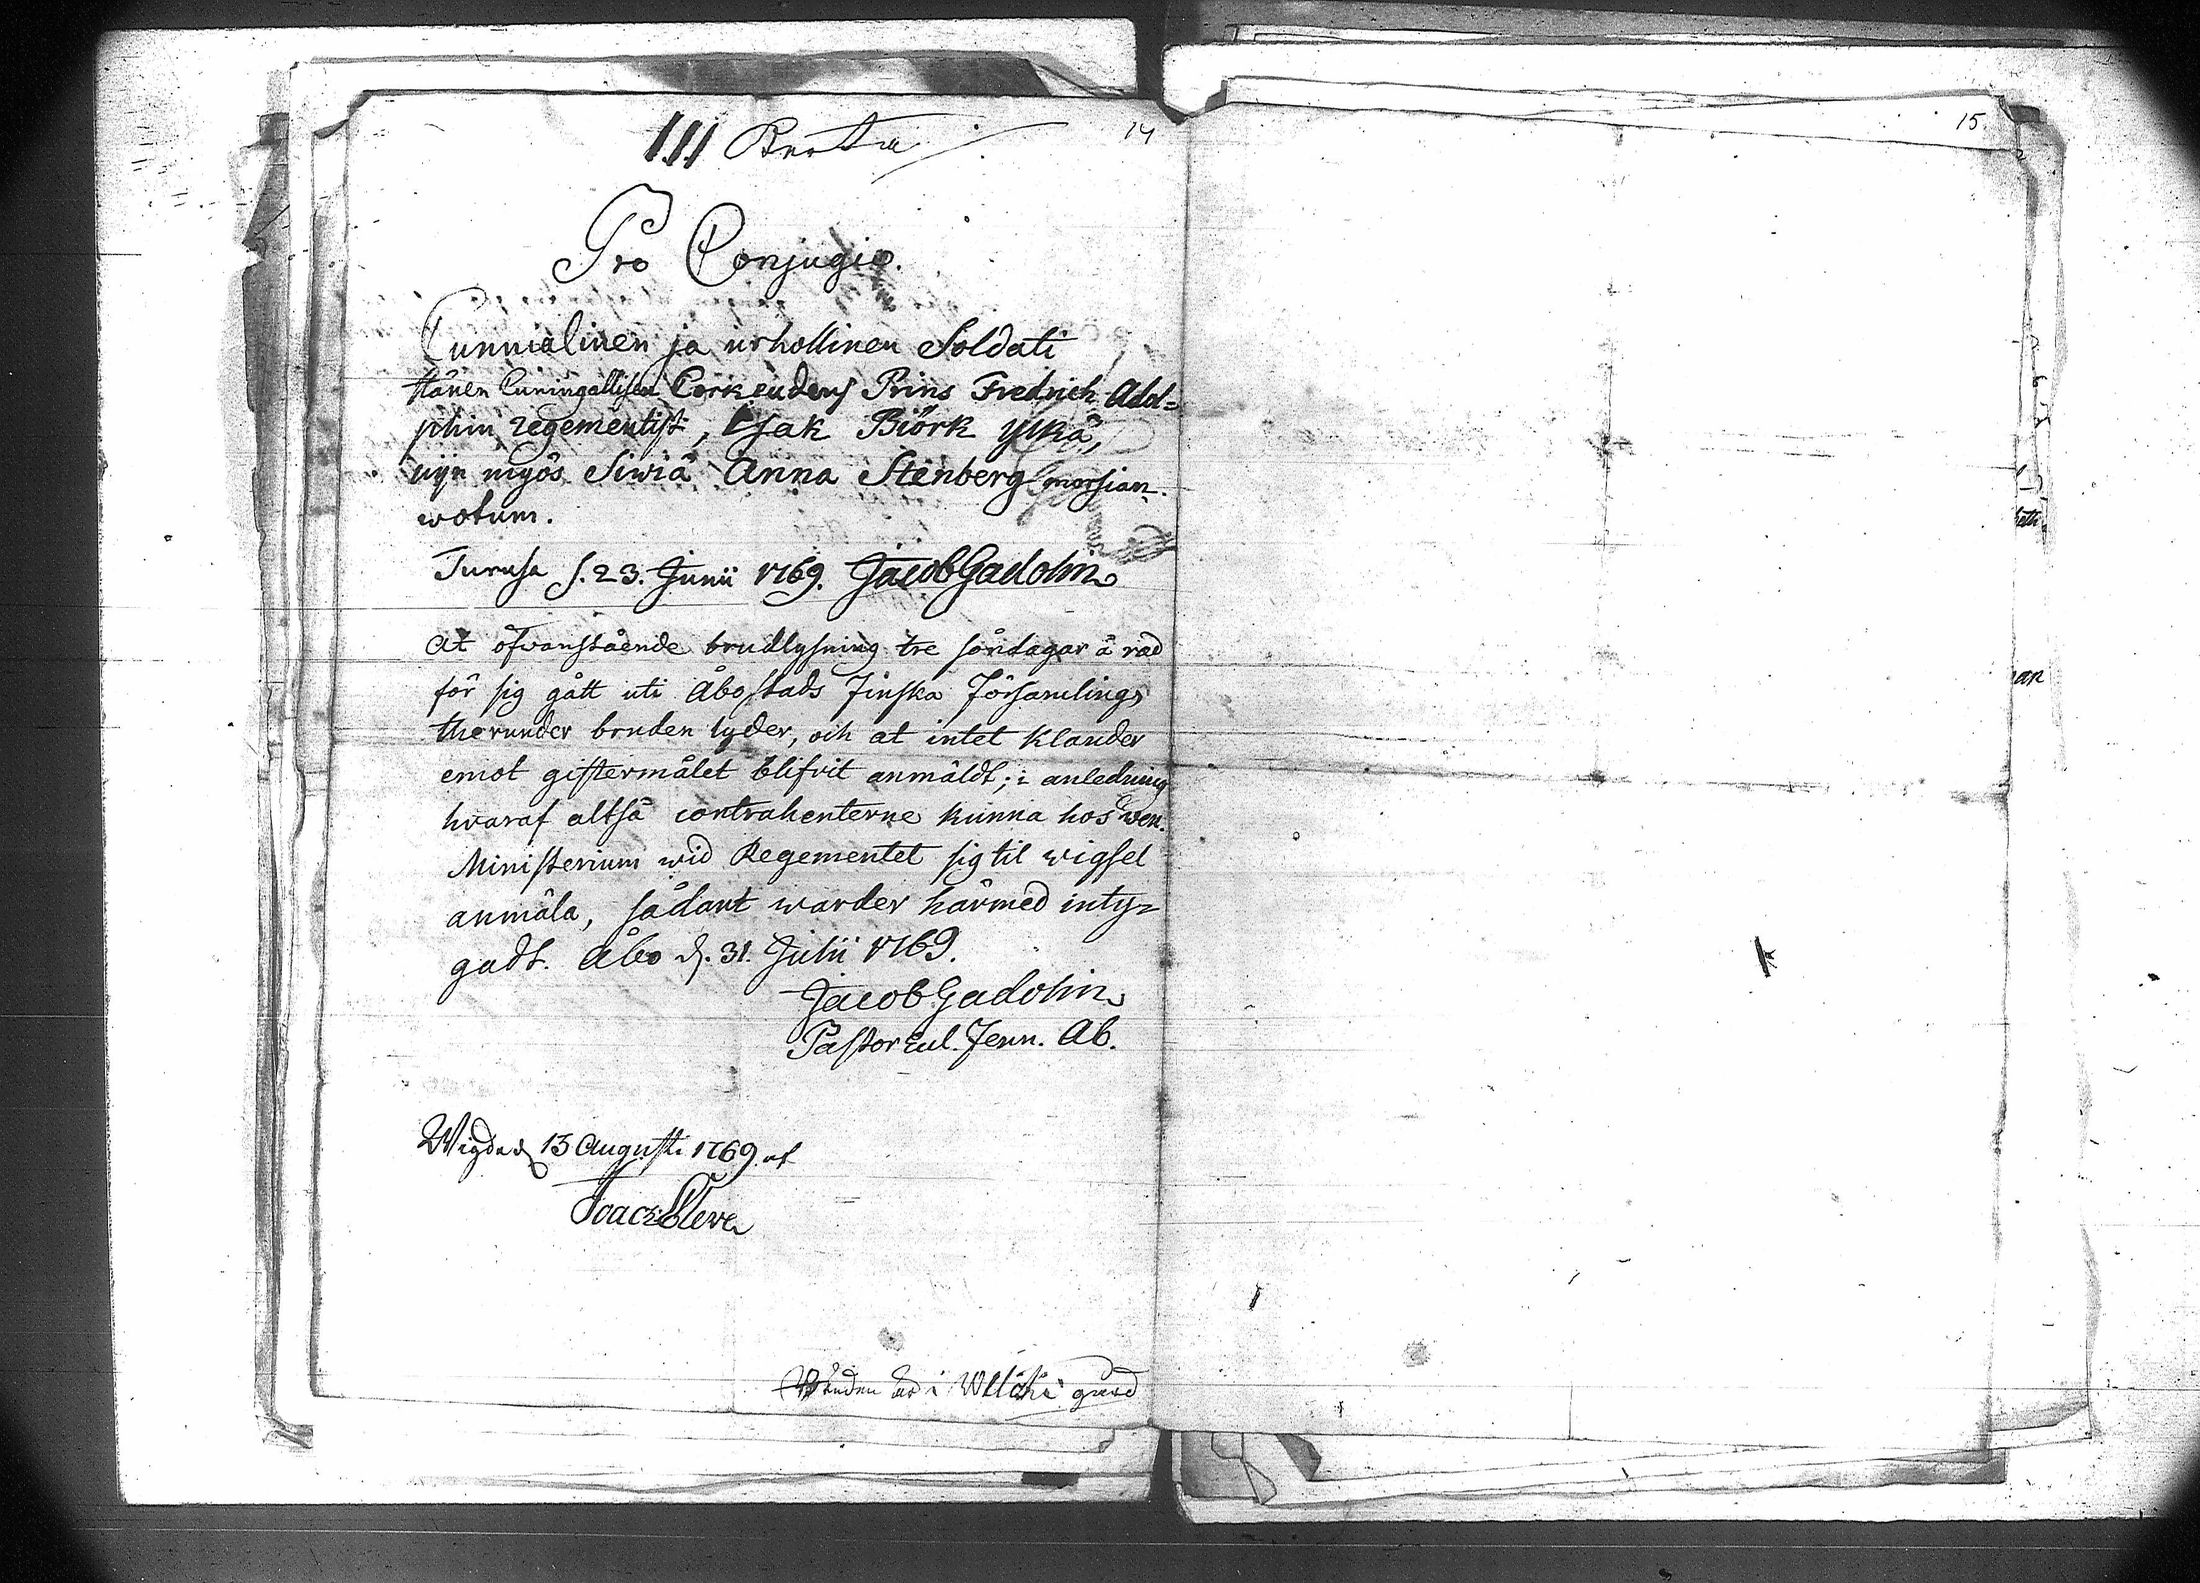 14
Pro Conjugio.
Cunnialinen ja urhollinen Soldati
hänen Cuningallisen Corkeudens Prins Fredrich Adol=
phin regementist, Isak Biörk ylkä,
nijn myös Siwiä Anna Stenberg morsian.
wotum.
Turusa d. 23. Junii 1769. Jacob Gadolin
At ofvanstående brudlysning tre söndagar å rad
för sig gått uti Åbo stads Finska Församling,
therunder bruden lyder, och at intet klander
emot giftermålet blifvit anmäldt; i anledning
hvaraf altså contrahenterne kunna hos Wen.
Ministerium wid Regementet sig til wigsel
anmäla, sådant warder härmed inty=
gadt. Åbo d. 31. Julii 1769.
Jacob Gadolin
Pastor Fenn. Ab.
Wigde d 13 Augusti 1769 af
Bruden är i gård
15